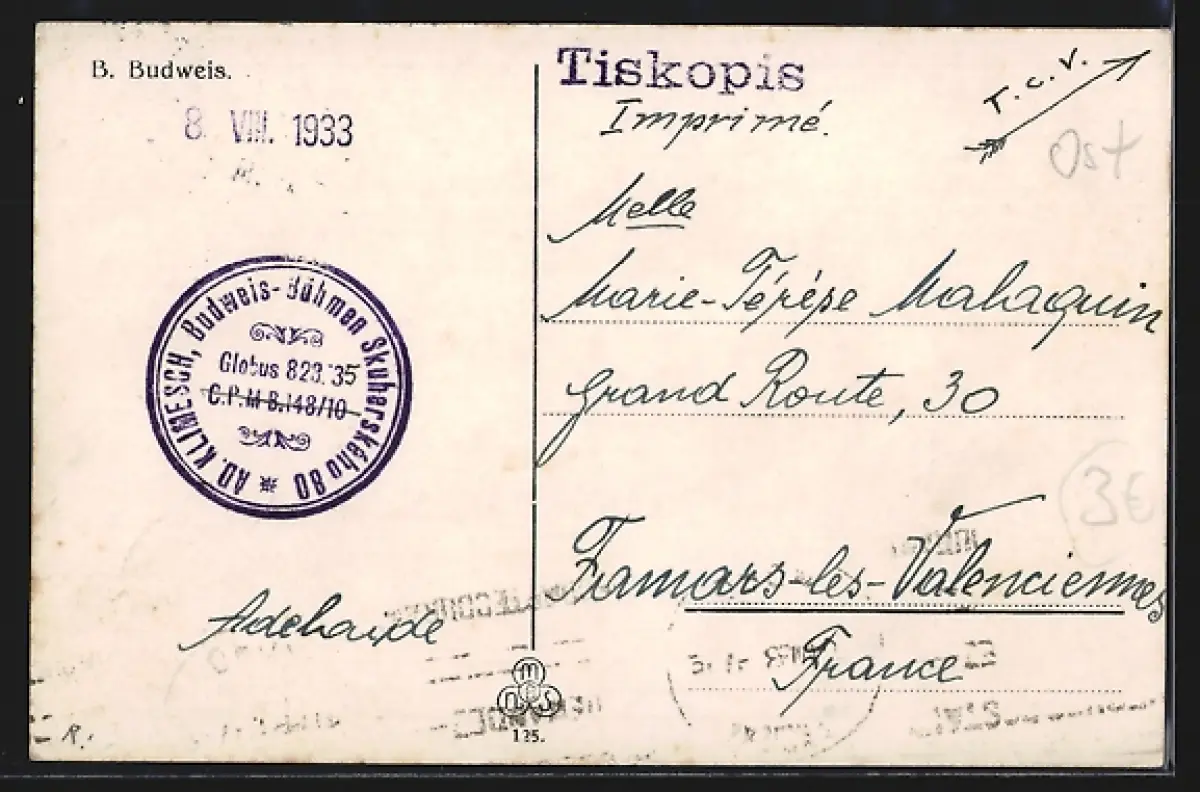 B. Budweis.
8. VIII. 1933
R.
AD. KLIMESCH, Budweis-Böhmen Skuherského 80
Globus 823.35
C.P.M B.148/10
Adelhaide
R.
Tiskopis
Imprimé.
T.C.V.
Ost
Melle
Marie-Térése Malaquin
Grand Route, 30
3€
Famars-les-Valenciennes
France
m
n s
125.